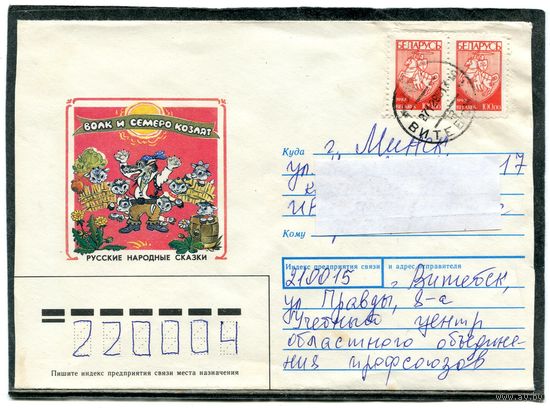 БЕЛАРУСЬ БЕЛАРУСЬ
100.00
ВИТЕБ
ВОЛК И СЕМЕРО КОЗЛЯТ
РУССКИЕ НАРОДНЫЕ СКАЗКИ
Куда г. Минск,
ул. 17
Кому
Индекс предприятия связи и адрес отправителя
210015, Витебск,
ул Правды, 8-а
Учебный центр
областного объедине-
ния профсоюзов
220004
Пишите индекс предприятия связи места назначения